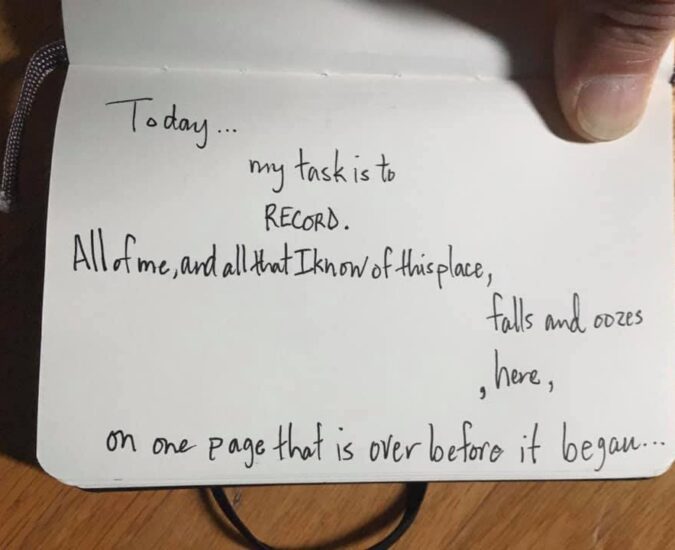 Today...
my task is to
RECORD.
All of me, and all that I know of this place,
falls and oozes
, here,
on one page that is over before it began...